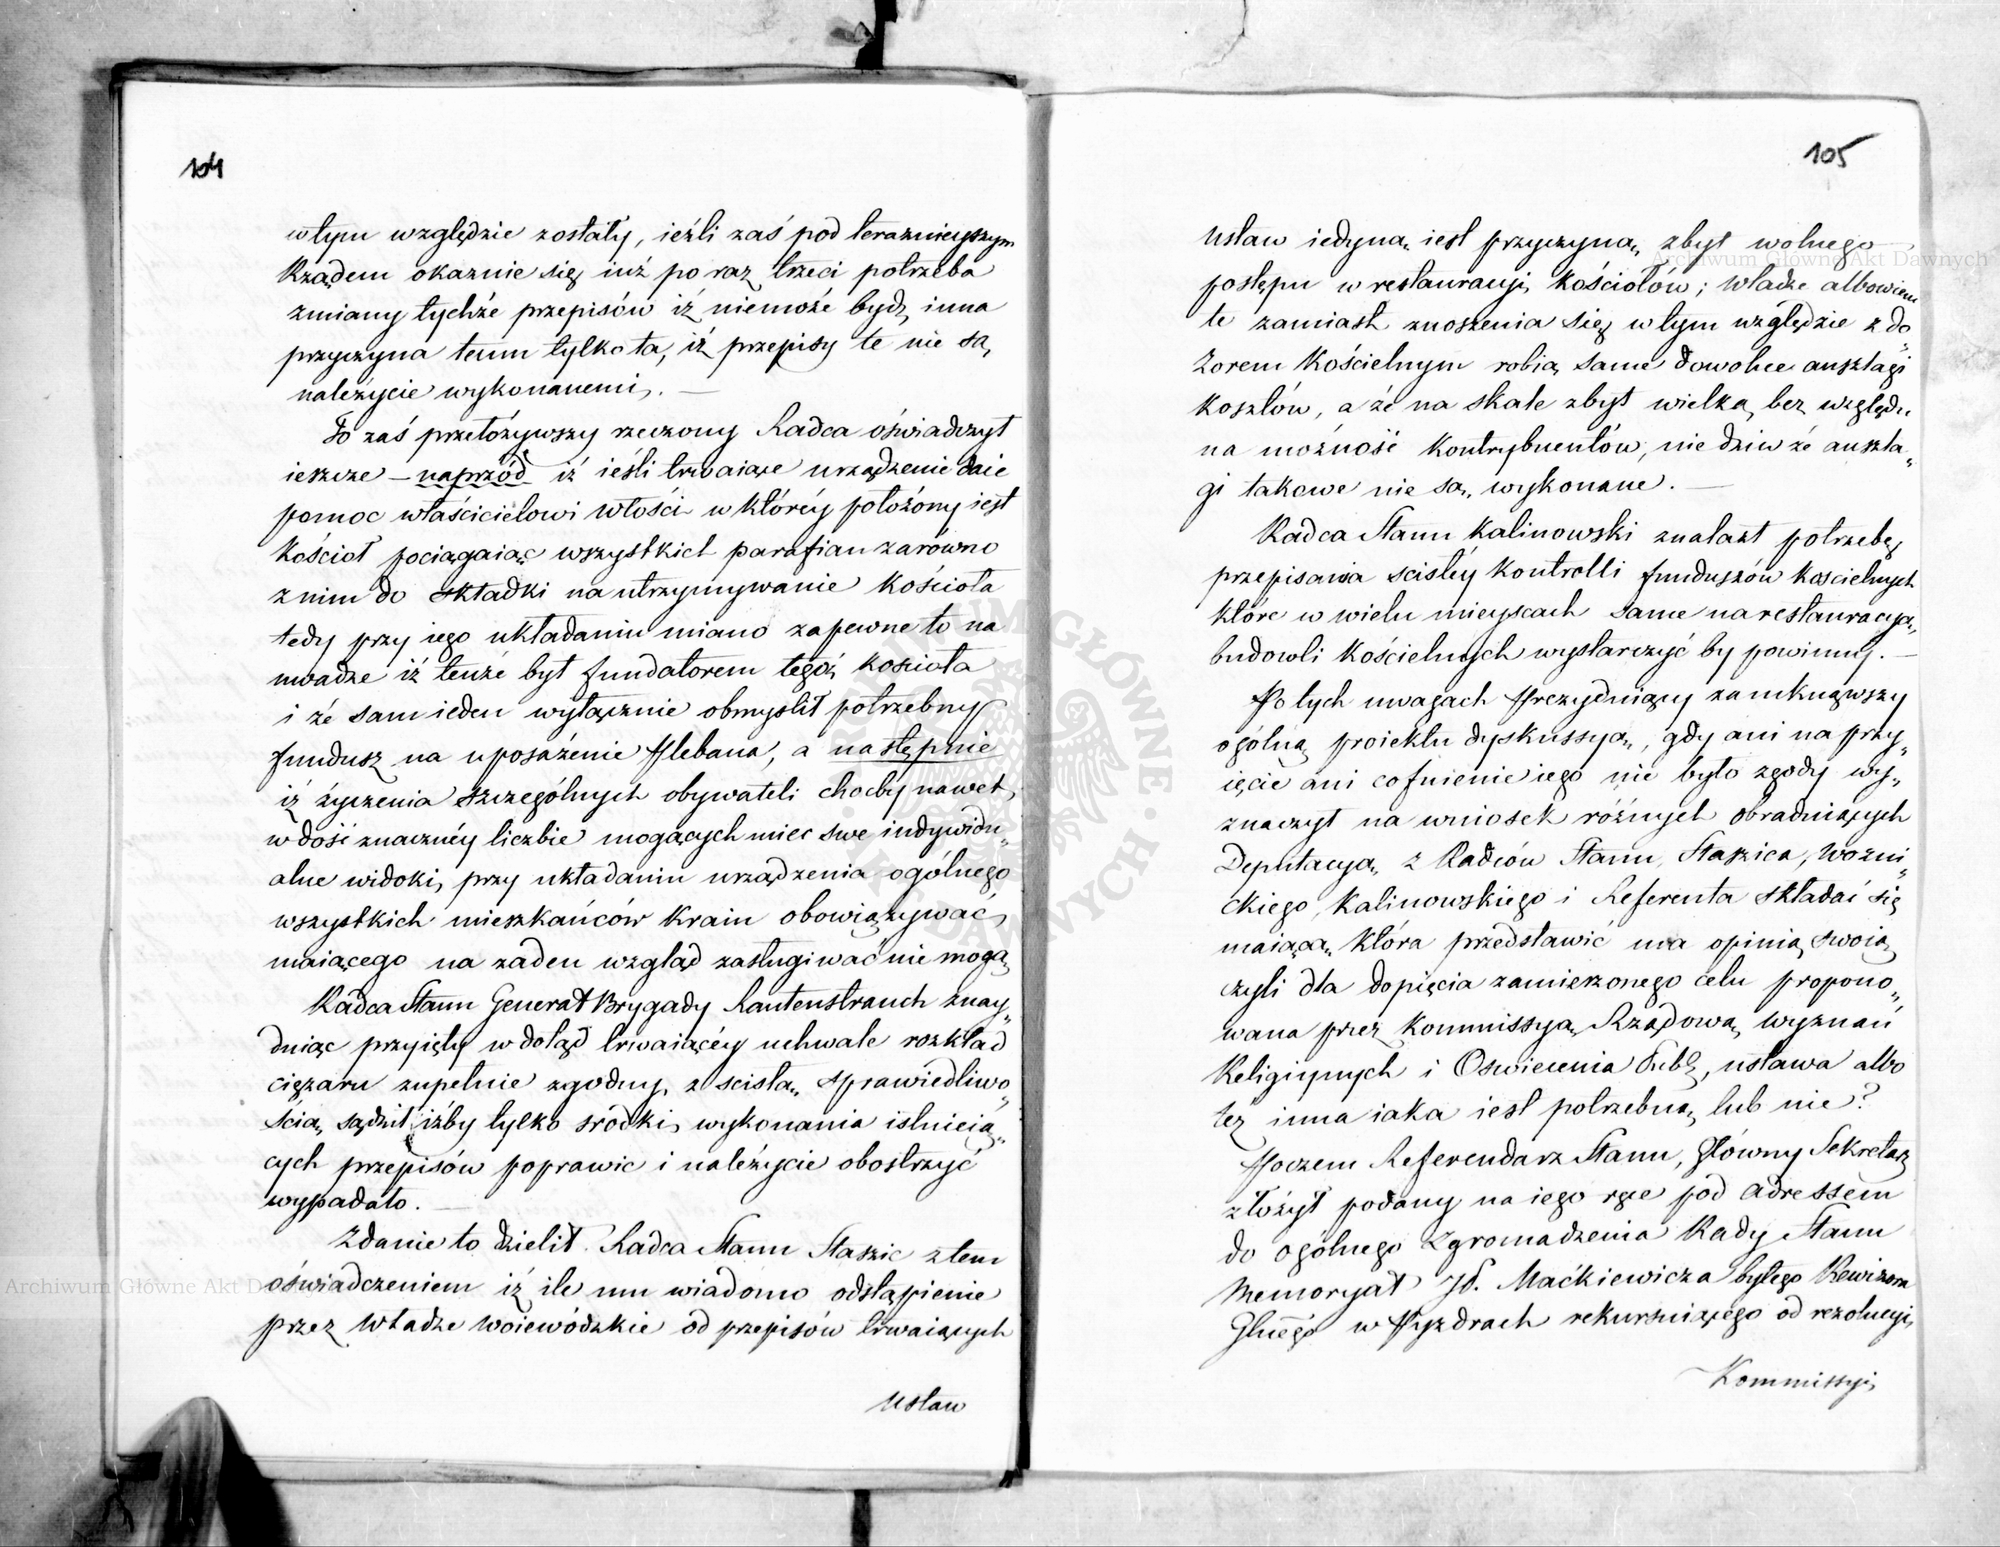 104
w tym względzie zostały, ieźli zaś pod teraznieyszym
Rządem okaznie się iuż po raz trzeci potrzeba
zmiany tychże przepisów iż niemoże bydź inna
przyczyna temu tylko ta, iż przepisy te nie są
należycie wykonanemi. —
To zaś przełożywszy rzeczony Radca oświadczył
ieszcze — naprzód iż ieśli trwaiące urządzenie daie
pomoc właścicielowi włości w któréy położony iest
Kościoł pociągaiąc wszystkich parafian zarówno
z nim do składki na utrzymywanie Kościoła
tedy przy iego układaniu miano zapewne to na
uwadze iż tenże był fundatorem tegoż kościoła
i że sam ieden wyłącznie obmyślił potrzebny
fundusz na uposażenie Plebana, a następnie
iż życzenia szczególnych obywateli choćby nawet
w dość znacznéy liczbie mogących miec swe indywidu„
alne widoki, przy układaniu urządzenia ogólnego
wszystkich mieszkańców Kraiu obowiązywać
maiącego na żaden wzgląd zasługiwać nie mogą
Radca Stanu Generał Brygady Rautenstrauch znay„
duiąc przyięty w dotąd trwaiącéy uchwale rozkład
ciężaru zupełnie zgodny z scisłą sprawiedliwo„
ścią sądził iżby tylko srodki wykonania istnieią„
cych przepisów poprawic i należycie obostrzyć
wypadało. —
Zdanie to dzielił Radca Stanu Staszic z tem
oświadczeniem iż ile mu wiadomo odstąpienie
przez Władze Woiewódzkie od przepisów trwaiących
Ustaw
105
Ustaw iedyną iest przyczyną zbyt wolnego
postępu w restauracyi Kościołów; Władze albowiem
te zamiast znoszenia się w tym względzie z do„
zorem Kościelnym robią same dowolne ausztagi
Kosztów, a że na skale zbyt wielką, bez względu
na możność Kontrybuentów, nie dziw że auszta„
gi takowe nie są wykonane. —
Radca Stanu Kalinowski znalazł potrzebę
przepisania scisłéy Kontrolli funduszów Kościelnych
które w wielu mieyscach same na restauracyą
budowli Kościelnych wystarczyć by powinny. —
Po tych uwagach Prezyduiący zamknąwszy
ogólną proiektu dyskussyą, gdy ani na przy„
ięcie ani cofnienie iego nie było zgody wy„
znaczył na wniosek różnych obraduiących
Deputacyą z Radców Stanu, Staszica, Woźni„
ckiego, Kalinowskiego i Referenta składać się
maiącą, Która przedstawić ma opinią swoią
czyli dla dopięcia zamierzonego celu propono„
wana przez Kommissyą Rządową Wyznań
Religiynych i Oswiecenia Publ, ustawa albo
też inna iaka iest potrzebną lub nie?
Poczem Referendarz Stanu, Główny Sekretarz
złożył podany na iego ręce pod adressem
do ogólnego Zgromadzenia Rady Stanu
Memoryał Maćkiewicza byłego Rewizora
Głnégo w Pyzdrach rekursuiącego od rezolucyi
Kommissyi
Archiwum Główne Akt Dawnych
Archiwum Główne Akt Dawnych
ARCHIWUM GŁÓWNE AKT DAWNYCH